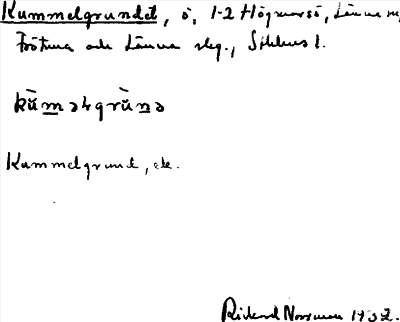 Kummelgrundet, ö, 1-2 Högmarsö, Länna sn,
Frötuna och Länna skg., Sthlms l.
kŭ̀m̲əɫgrŭ̀n̲ə
Kummelgrund, ek.
Rickard Norrman 1932.